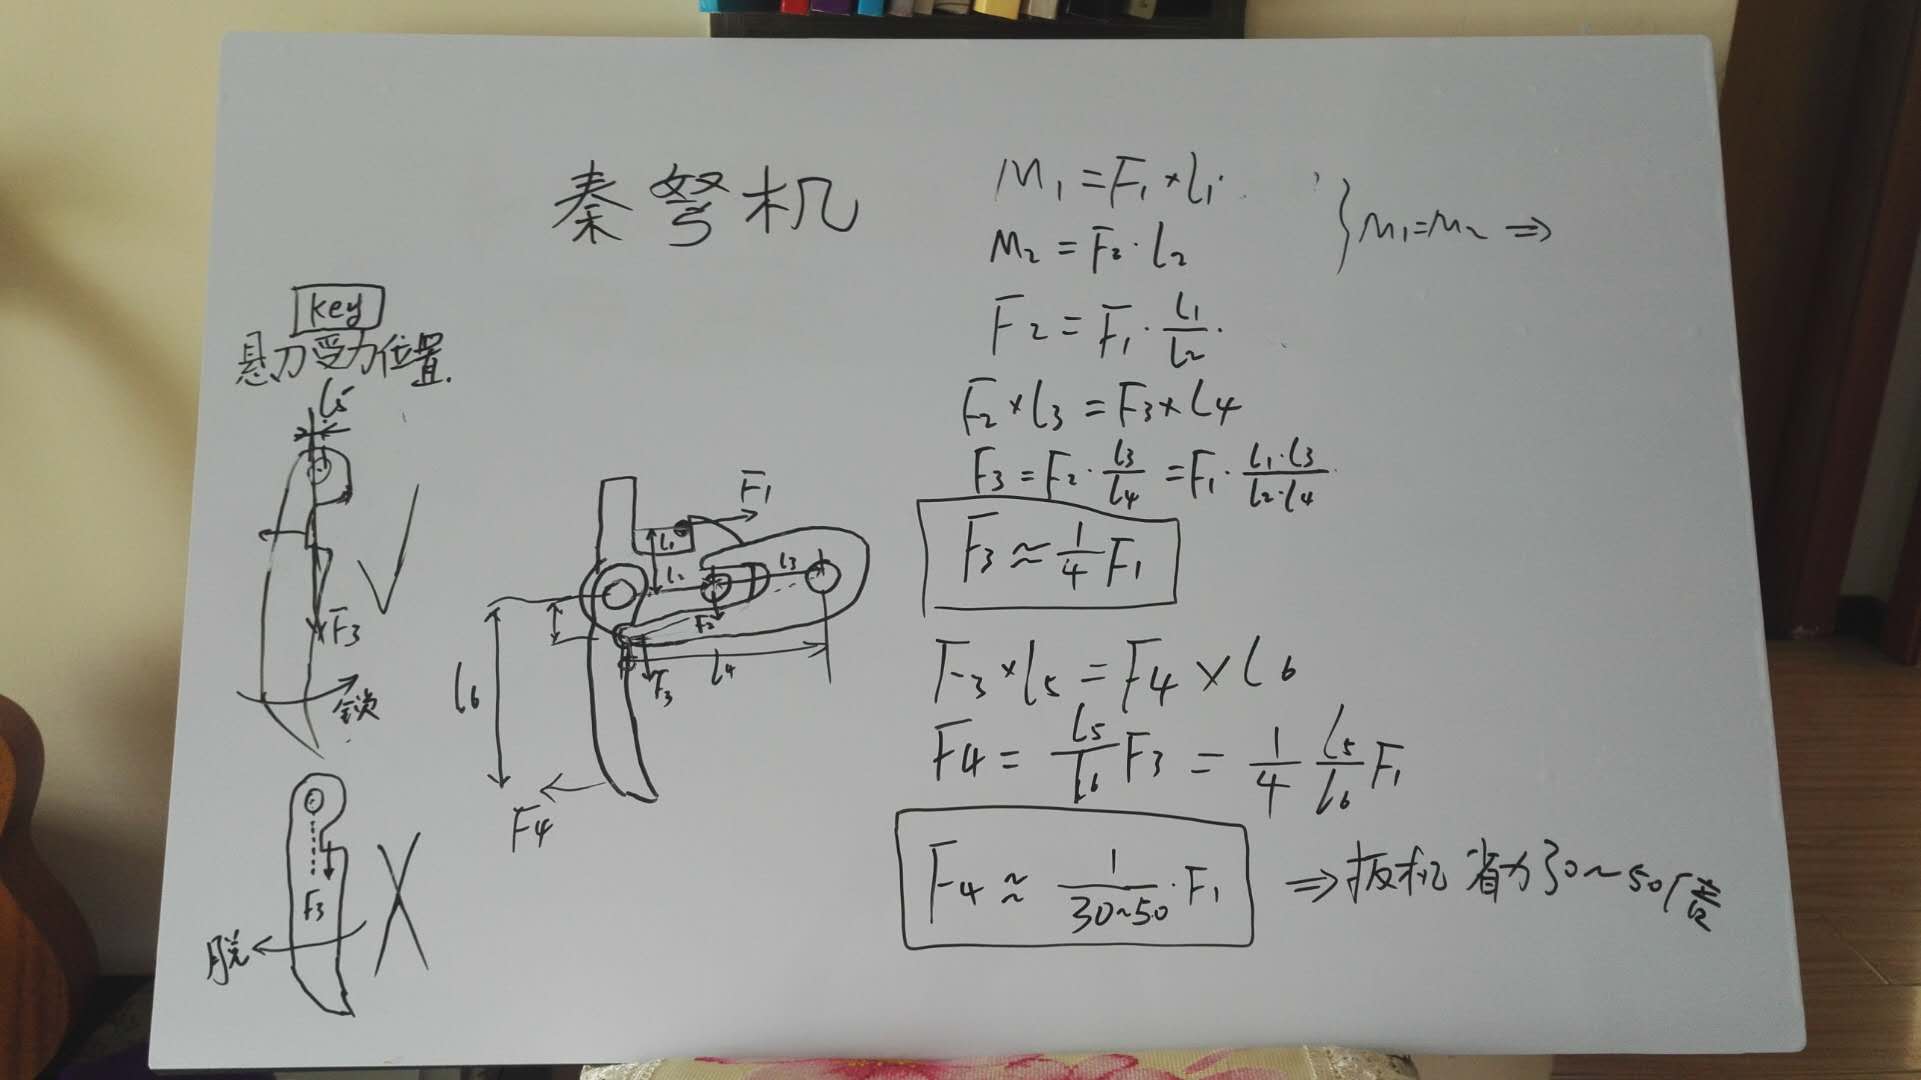 秦弩机
key
悬刀受力位置.
l5
F3
锁
F3
脱
F1
l1
l2
l3
F2
F3
l4
l6
F4
M1=F1×l1
M2=F2·l2
}M1=M2⇒
F2=F1·l1/l2
F2×l3=F3×l4
F3=F2·l3/l4=F1·l1·l3/l2·l4
F3≈1/4F1
F3×l5=F4×l6
F4=l5/l6F3=1/4 l5/l6F1
F4≈1/30~50·F1 ⇒扳机省力30~50倍